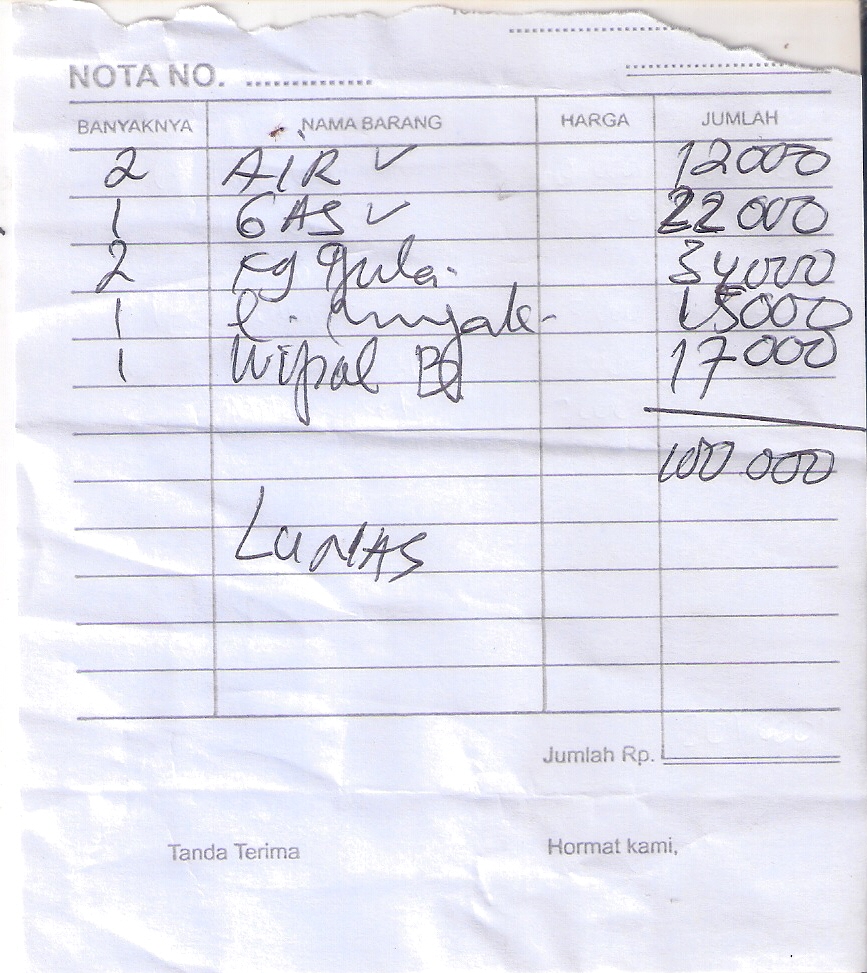 NOTA NO. ....................
BANYAKNYA NAMA BARANG HARGA JUMLAH
2 AIR ✓ 12000
1 GAS ✓ 22000
2 Kg gula. 34000
1 15000
1 Wipal 17000
100.000
LUNAS
Jumlah Rp.
Tanda Terima Hormat kami,